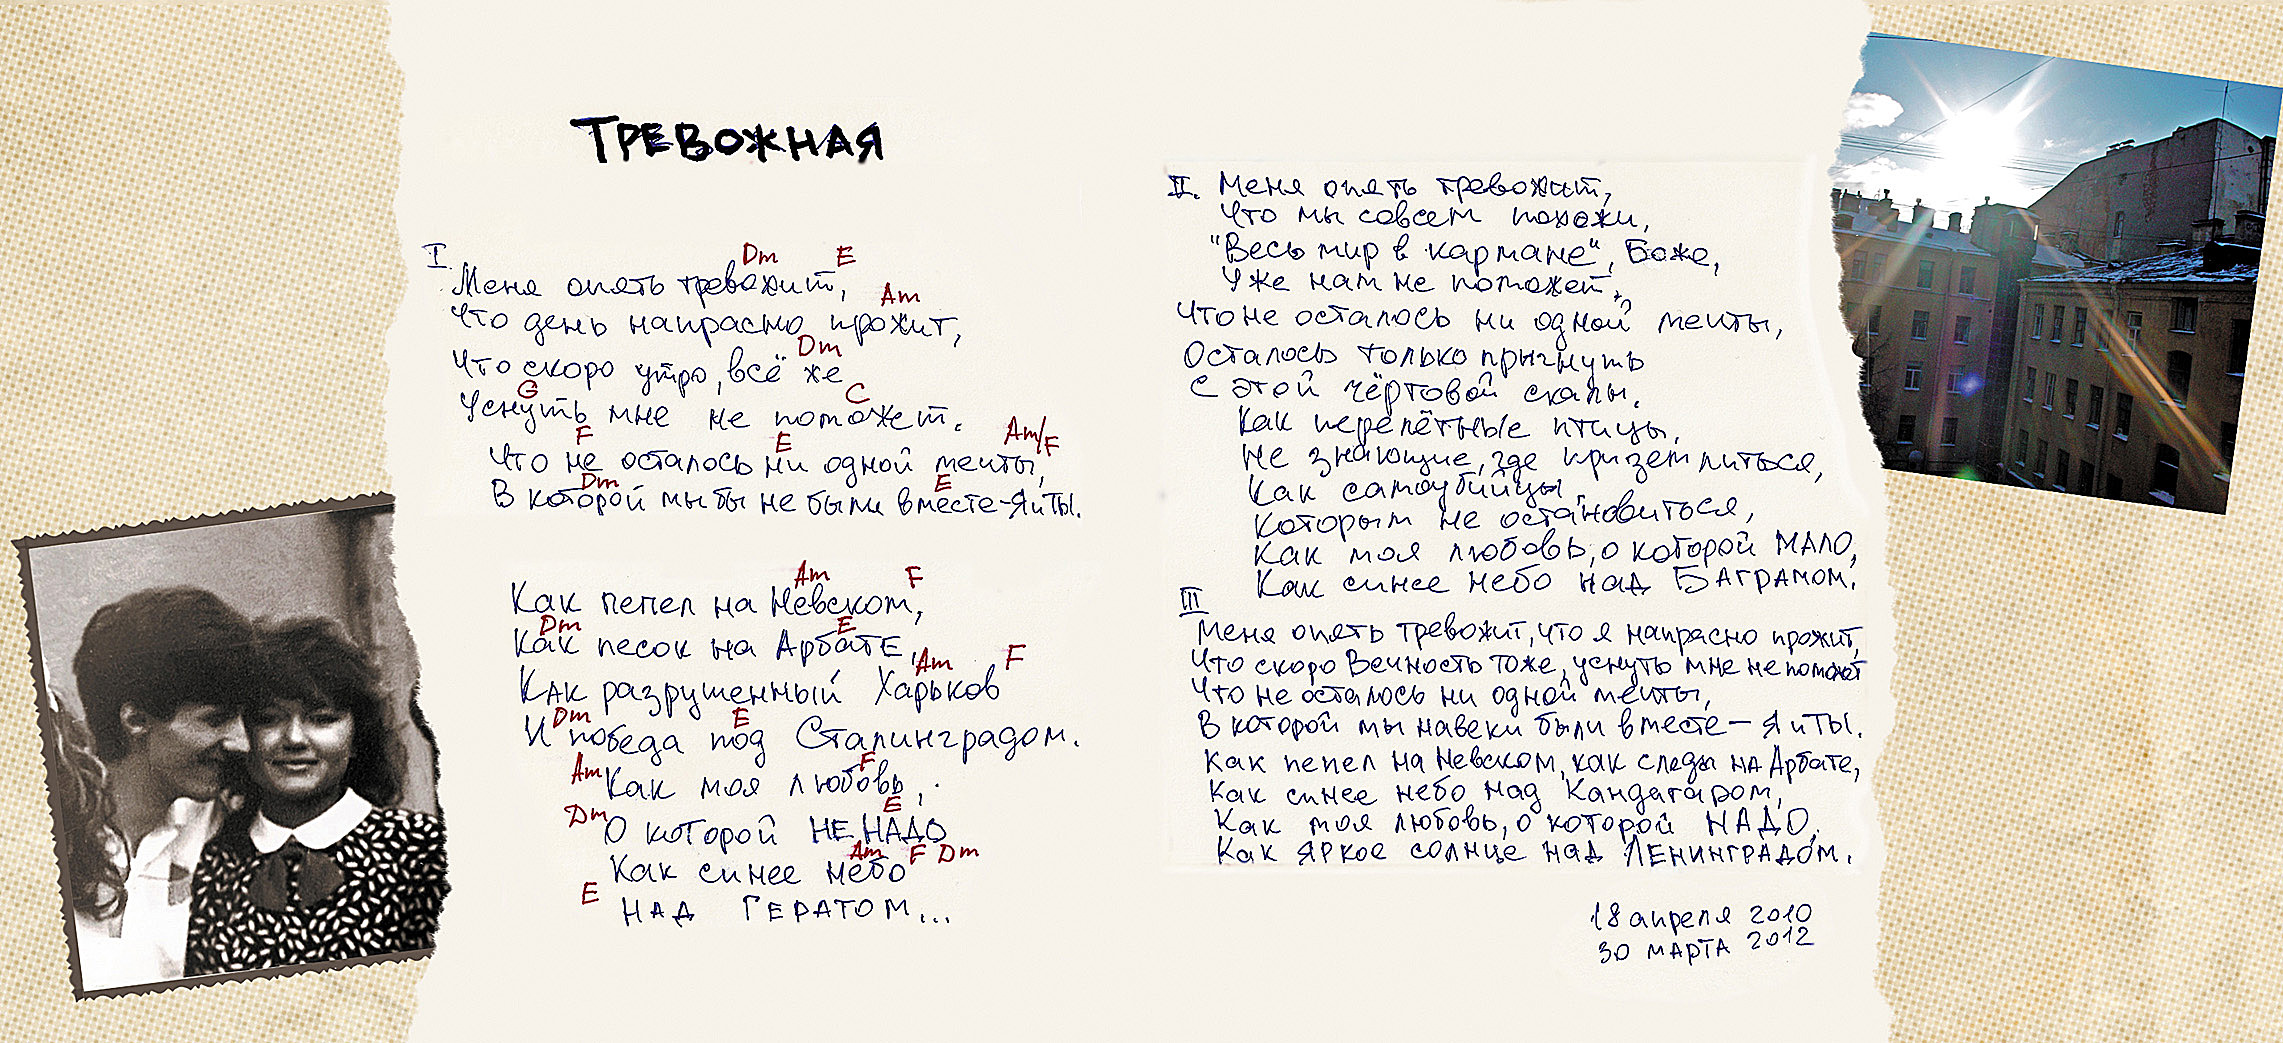 ТРЕВОЖНАЯ
I.
Dm E
Меня опять тревожит,
Am
Что день напрасно прожит,
Dm
Что скоро утро, всё же
G C
Уснуть мне не поможет.
F E Am/F
Что не осталось ни одной мечты,
Dm E
В которой мы бы не были вместе - Я и ТЫ.
Am F
Как пепел на Невском,
Dm E
Как песок на Арбате,
Am F
Как разрушенный Харьков
Dm E
И победа под Сталинградом.
Am F
Как моя любовь,
Dm E
О которой НЕ НАДО
Am F Dm
Как синее небо
E
НАД ГЕРАТОМ...
II. Меня опять тревожит,
Что мы совсем похожи,
"Весь мир в кармане", Боже,
Уже нам не поможет,
Что не осталось ни одной мечты,
Осталось только прыгнуть
С этой чёртовой скалы.
Как перелётные птицы,
Не знающие, где приземлиться,
Как самоубийцы,
Которым не остановиться,
Как моя любовь, о которой МАЛО,
Как синее небо над БАГРАМОМ.
III
Меня опять тревожит, что я напрасно прожит,
Что скоро Вечность тоже, уснуть мне не поможет
Что не осталось ни одной мечты,
В которой мы навеки были вместе — Я и ТЫ.
Как пепел на Невском, как следы на Арбате,
Как синее небо над Кандагаром,
Как моя любовь, о которой НАДО,
Как яркое солнце над ЛЕНИНГРАДОМ.
18 апреля 2010
30 марта 2012